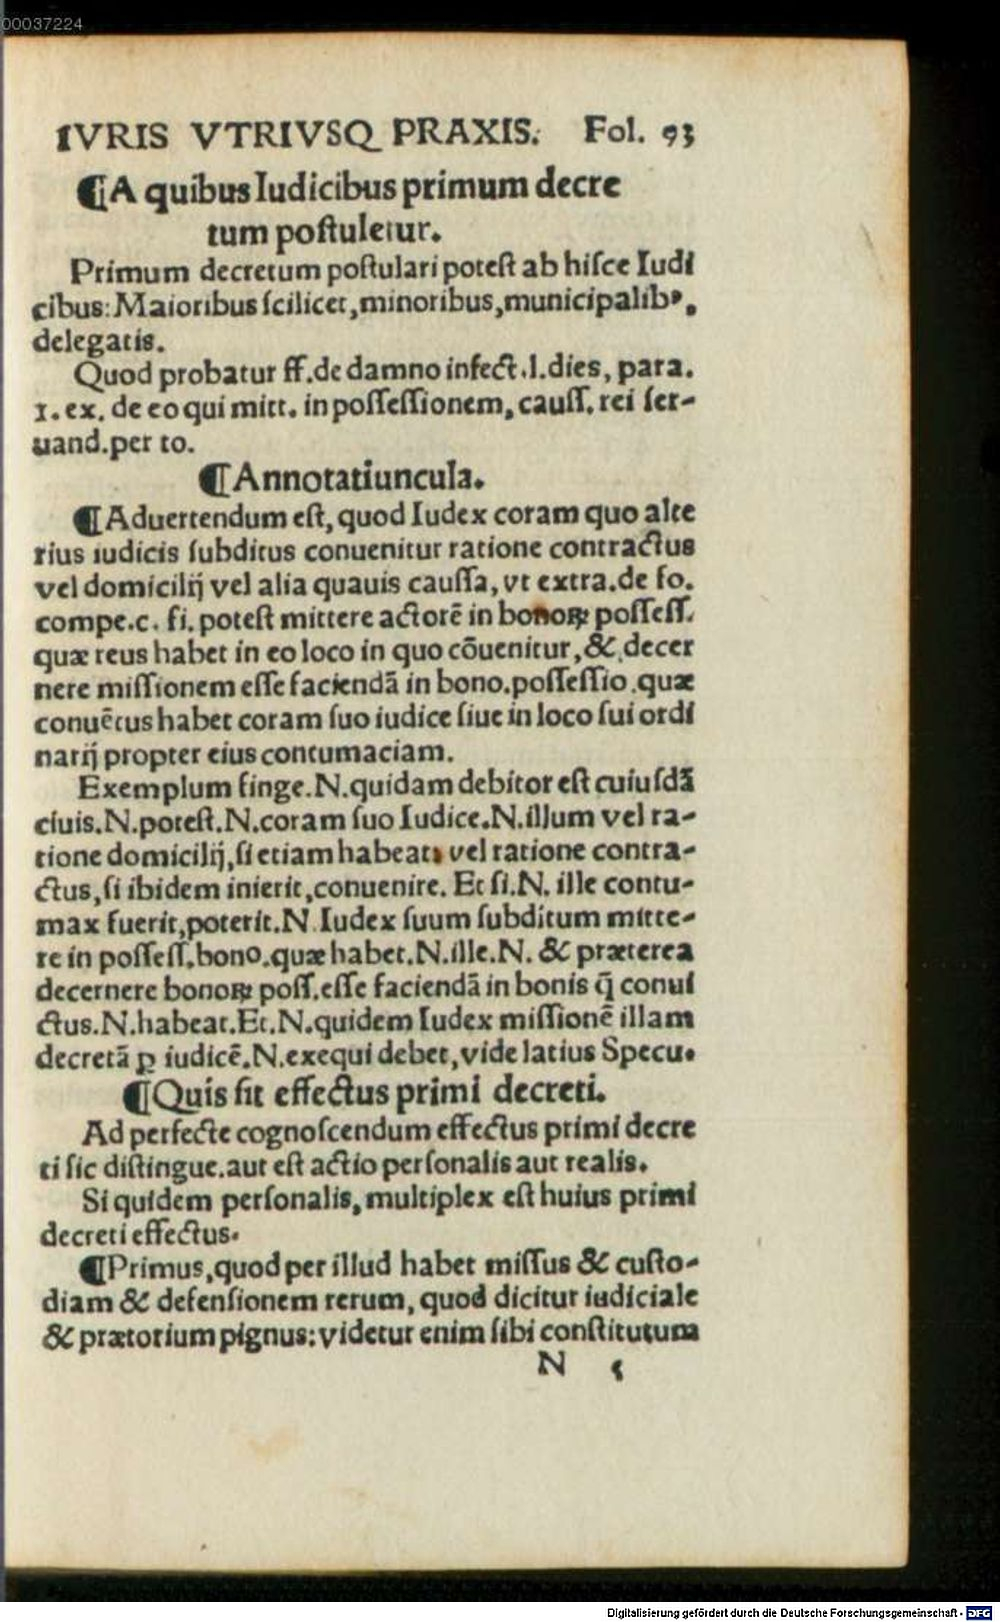 00037224
IVRIS VTRIVSQ PRAXIS. Fol. 93
¶A quibus Iudicibus primum decre
tum poſtuletur.
Primum decretum poſtulari poteſt ab hiſce Iudi
cibus: Maioribus ſcilicet, minoribus, municipalibꝰ,
delegatis.
Quod probatur ff. de damno infect. l. dies, para.
1. ex. de eo qui mitt. in poſſeſſionem, cauſſ. rei ſer-
uand. per to.
¶Annotatiuncula.
¶Aduertendum eſt, quod Iudex coram quo alte
rius iudicis ſubditus conuenitur ratione contractus
vel domicilij vel alia quauis cauſſa, vt extra. de fo.
compe. c. fi. poteſt mittere actorē in bonoꝝ poſſeſſ.
quæ reus habet in eo loco in quo cōuenitur, & decer
nere miſſionem eſſe faciendā in bono. poſſeſſio. quæ
conuētus habet coram ſuo iudice ſiue in loco ſui ordi
narij propter eius contumaciam.
Exemplum finge. N. quidam debitor eſt cuiuſdā
ciuis. N. poteſt. N. coram ſuo Iudice. N. illum vel ra-
tione domicilij, ſi etiam habeat, vel ratione contra-
ctus, ſi ibidem inierit, conuenire. Et ſi. N. ille contu-
max fuerit, poterit. N. Iudex ſuum ſubditum mitte-
re in poſſeſſ. bono. quæ habet. N. ille. N. & præterea
decernere bonoꝝ poſſ. eſſe faciendā in bonis q̄ conui
ctus. N. habeat. Et. N. quidem Iudex miſſionē illam
decretā ꝑ iudicē. N. exequi debet, vide latius Specu.
¶Quis ſit effectus primi decreti.
Ad perfecte cognoſcendum effectus primi decre
ti ſic diſtingue. aut eſt actio perſonalis aut realis.
Si quidem perſonalis, multiplex eſt huius primi
decreti effectus.
¶Primus, quod per illud habet miſſus & cuſto-
diam & defenſionem rerum, quod dicitur iudiciale
& prætorium pignus: videtur enim ſibi conſtitutum
N 5
Digitalisierung gefördert durch die Deutsche Forschungsgemeinschaft - DFG